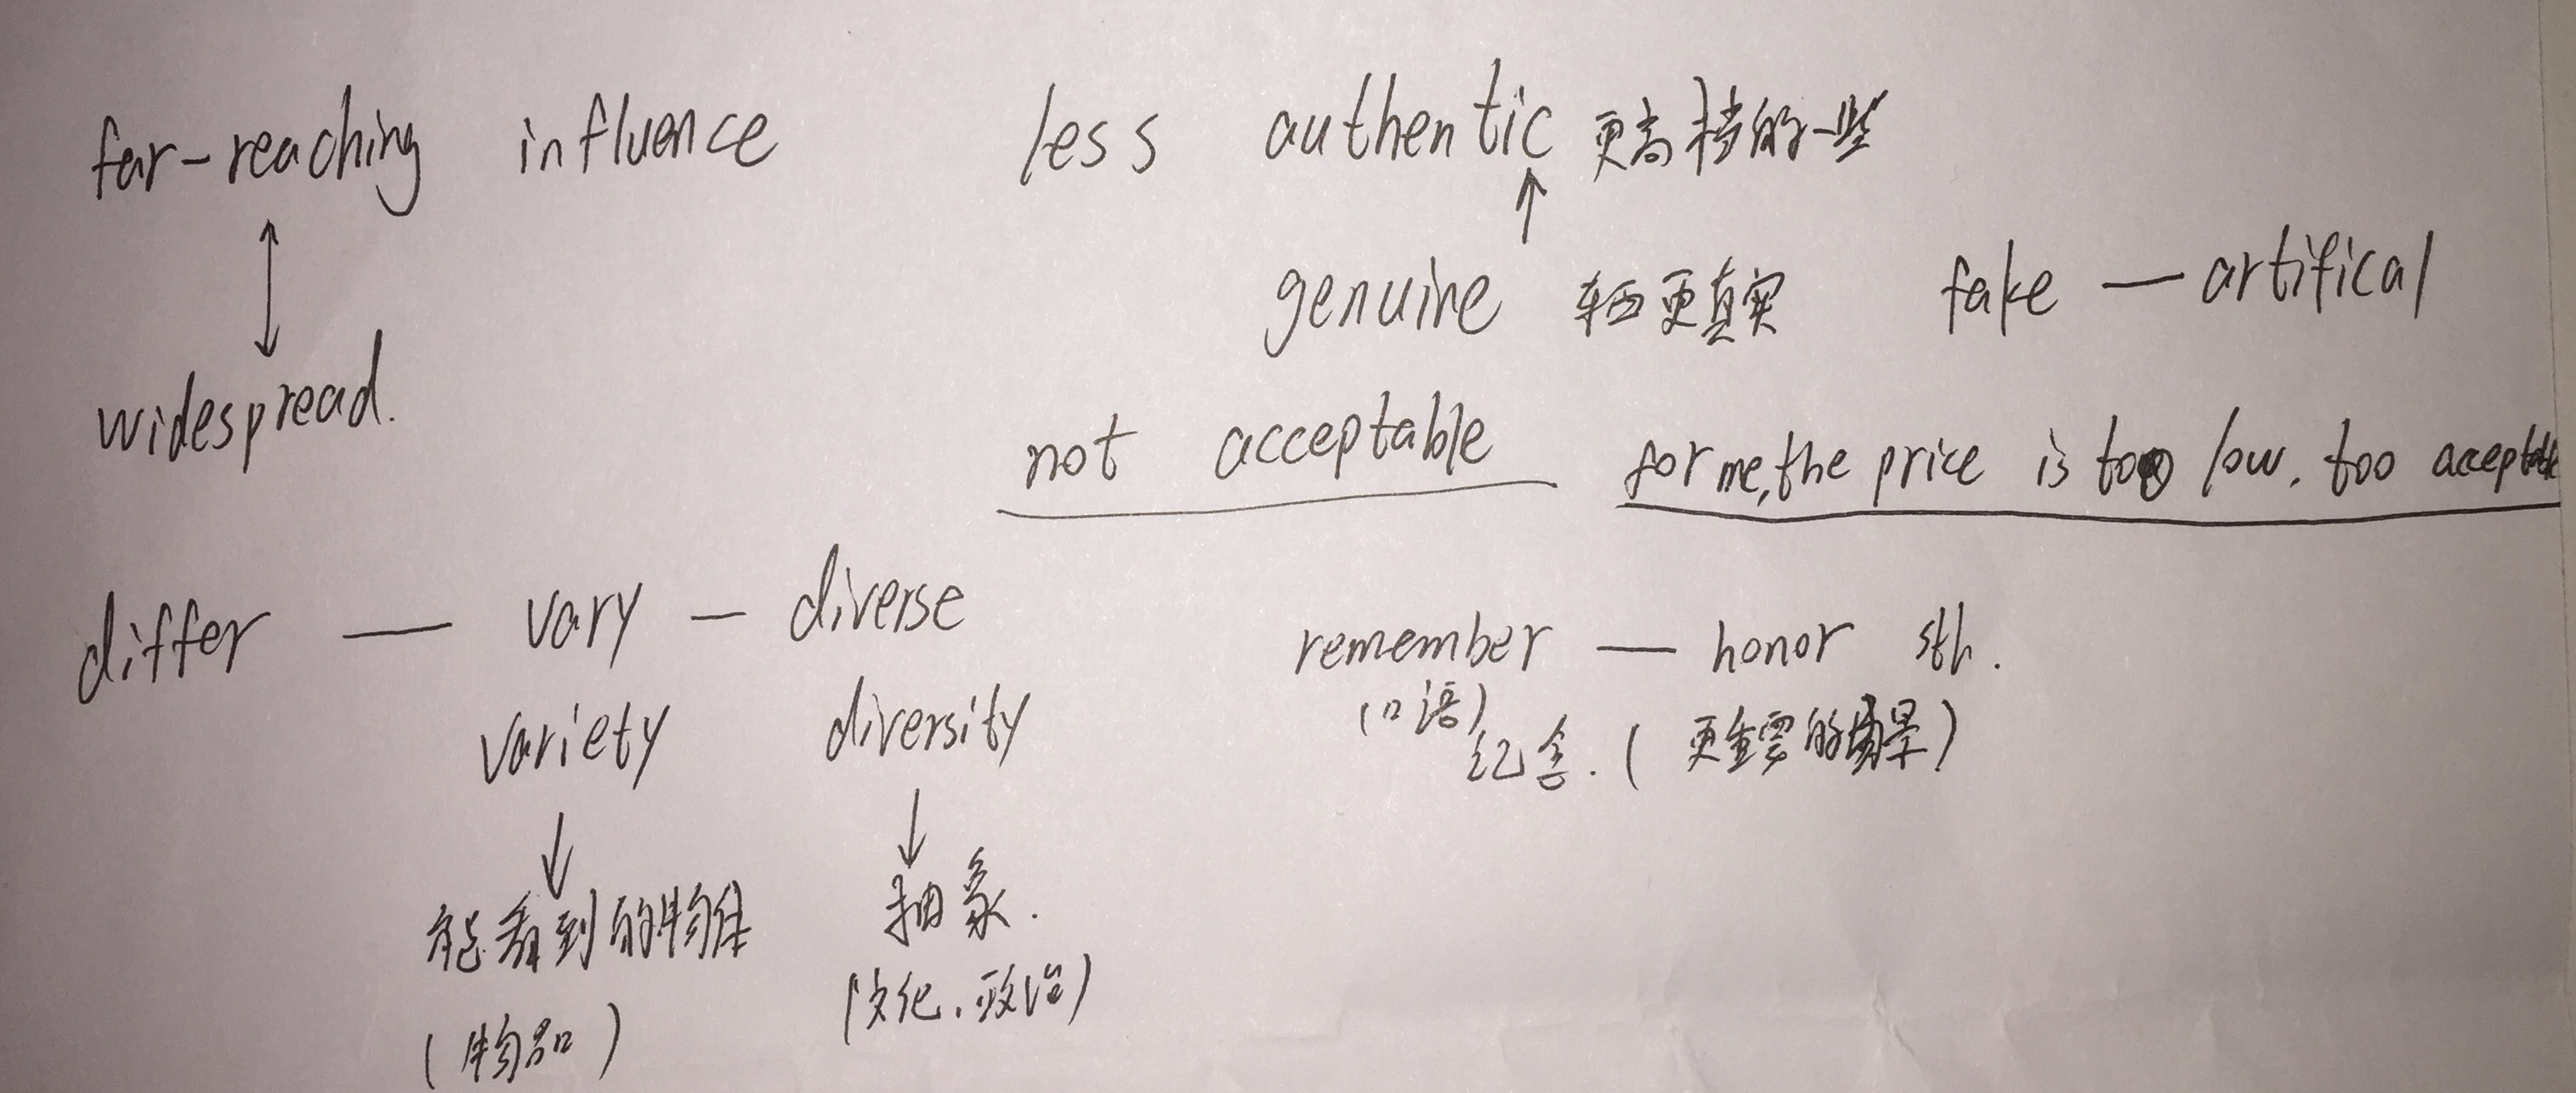 far-reaching influence
widespread.
less authentic 更高档的一些
genuine 东西更真实
fake — artifical
not acceptable
for me, the price is too low. too
differ — vary — diverse
variety diversity
能看到的物体
(物品)
抽象.
(文化.政治)
remember — honor sth.
(口语)
纪念. (更重要的场景)